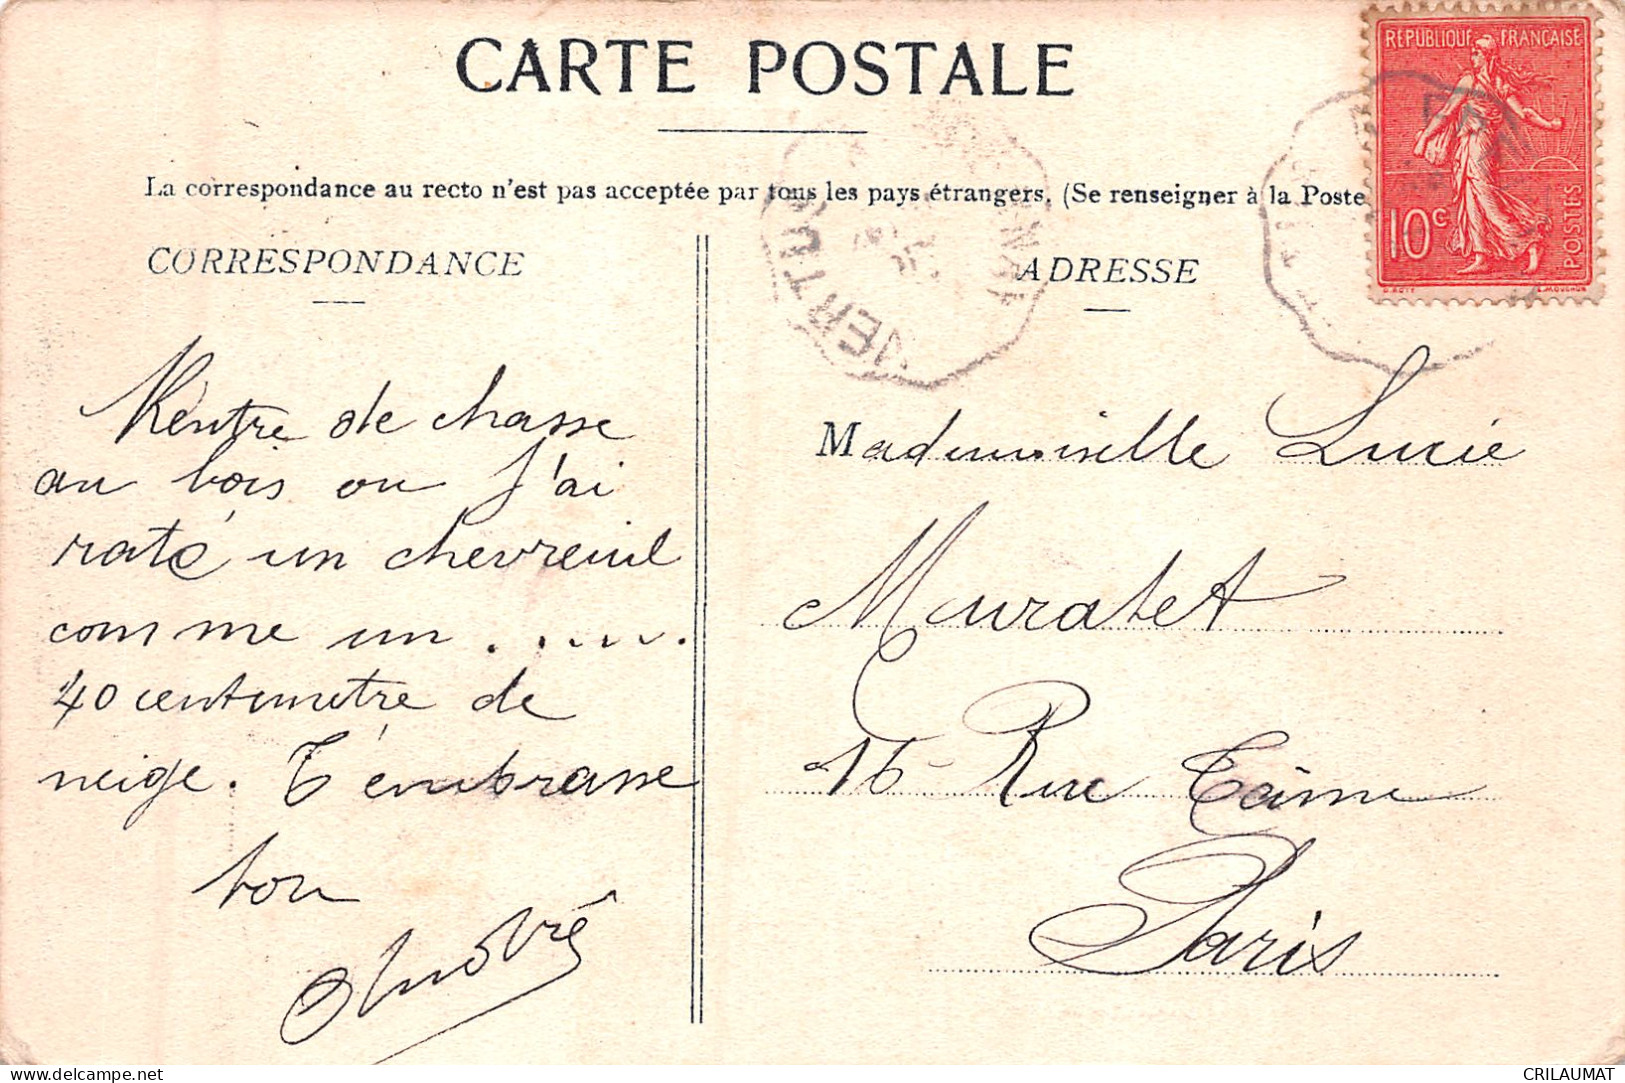 CARTE POSTALE
La correspondance au recto n'est pas acceptée par tous les pays étrangers. (Se renseigner à la Poste
CORRESPONDANCE
Rentre de chasse
au bois ou j'ai
raté un chevreuil
comme un . . . . . .
40 centimetre de
neige. T'embrasse
ton
André
ADRESSE
Mademoiselle Lucie
Muratet
16 Rue
Paris
REPUBLIQUE FRANÇAISE
10c
POSTES
O. ROTY
E. MOUCHON
VERTUS
www.delcampe.net
CRILAUMAT